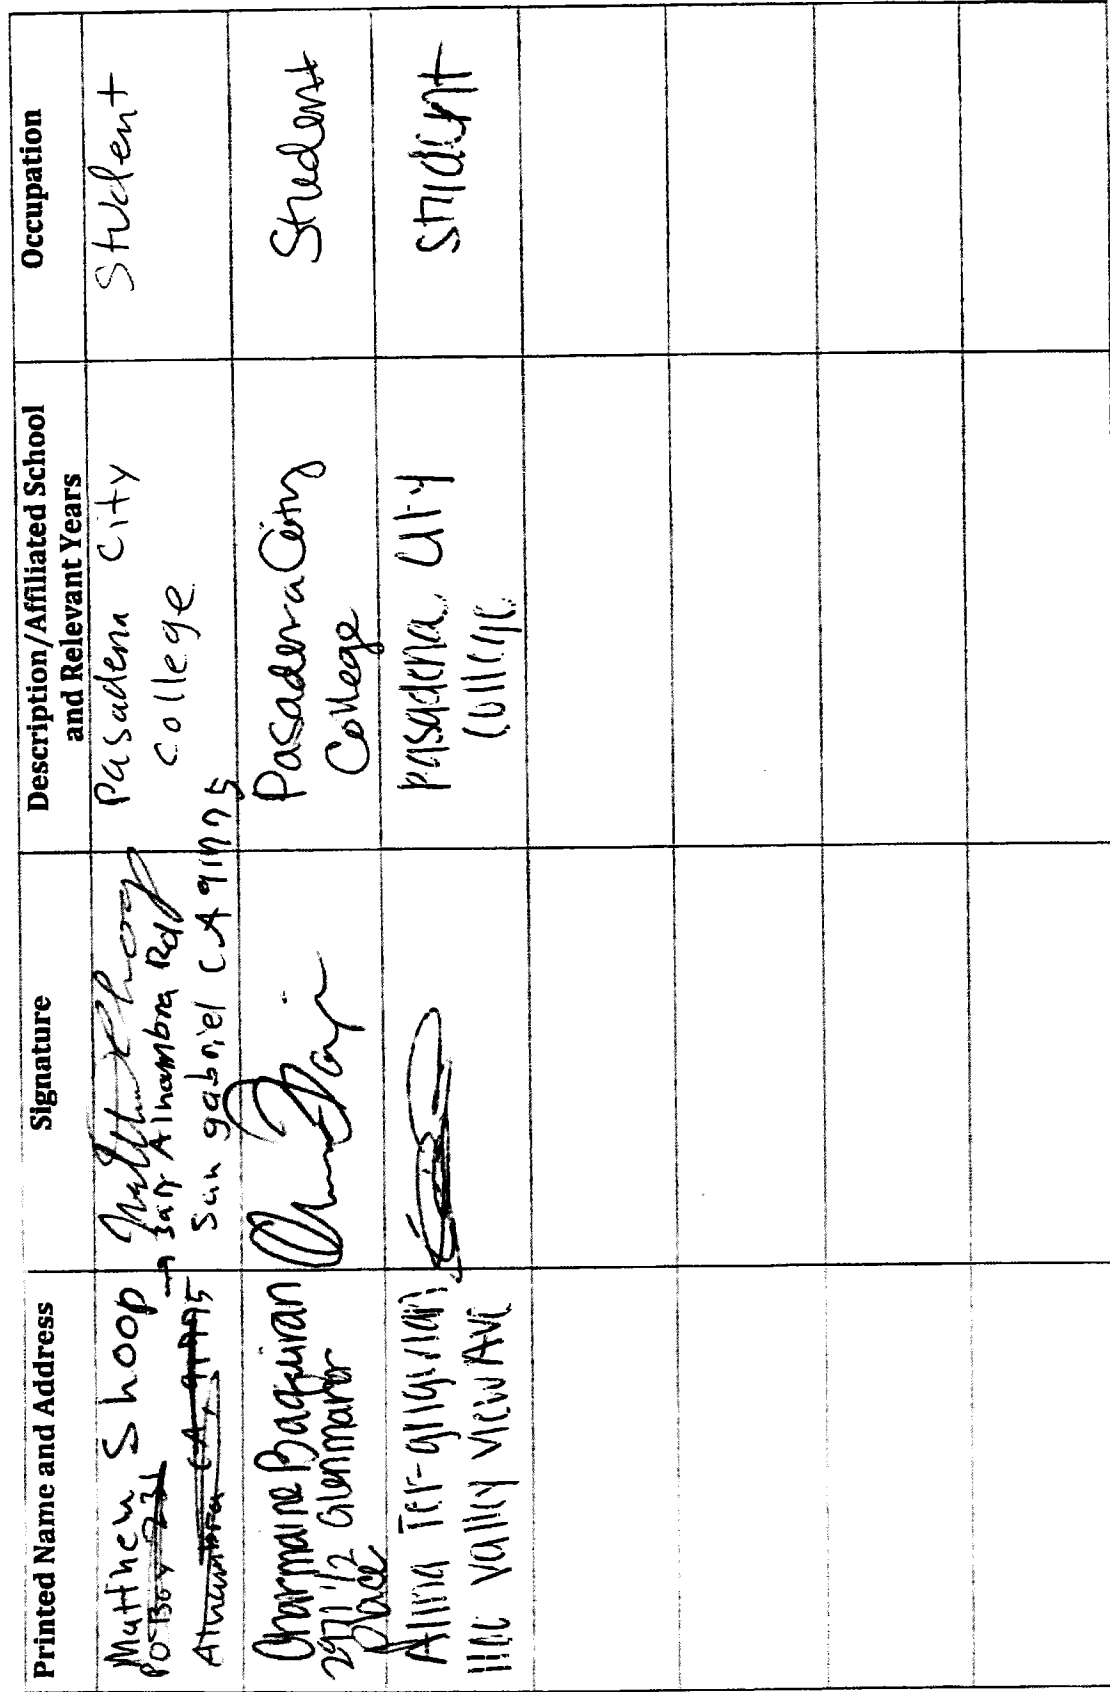 Printed Name and Address
Signature
Description/Affiliated School
and Relevant Years
Occupation
Matthew Shoop
PO Box 231
Alhambra CA, 91775
→ Alhambra Rd
San gabriel CA 91775
Pasadena City
College
Student
Charmaine Baquiran
2971 1/2 Glenmanor
Place
Pasadena City
College
Student
Alina Ter-grigorian
Valley View Ave
Pasadena City
College
Student